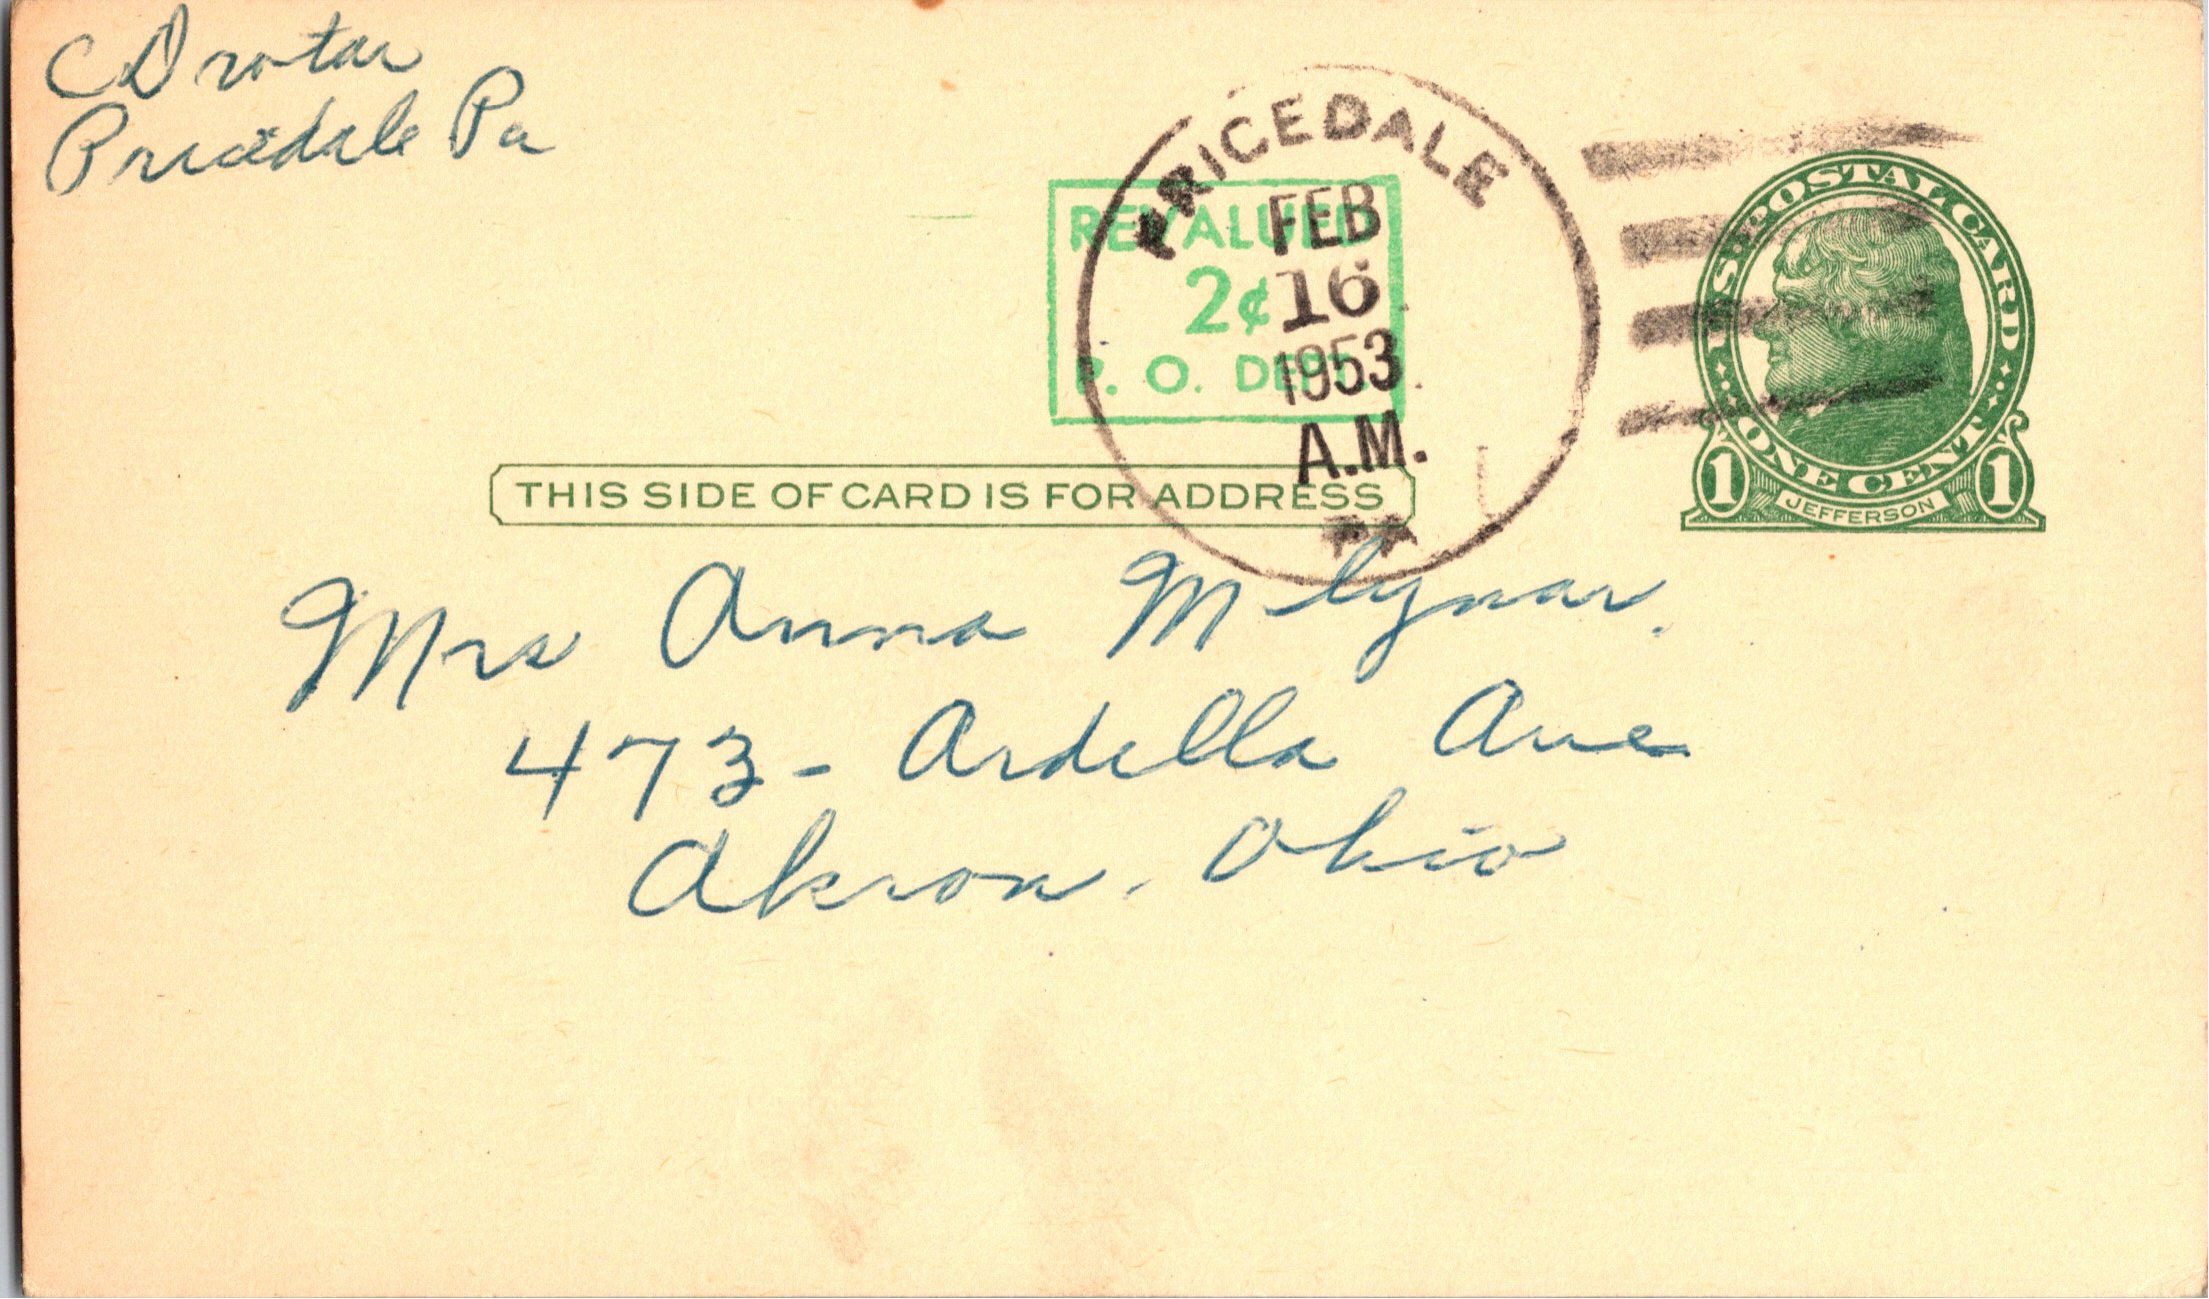 C Drotar
Pricedale Pa
PRICEDALE
FEB
16
1953
A.M.
PA
REVALUED
2¢
P. O. DEPT.
U.S. POSTAL CARD
ONE CENT
1 JEFFERSON 1
THIS SIDE OF CARD IS FOR ADDRESS
Mrs Anna Mlynar.
473 - Ardella Ave
Akron, Ohio